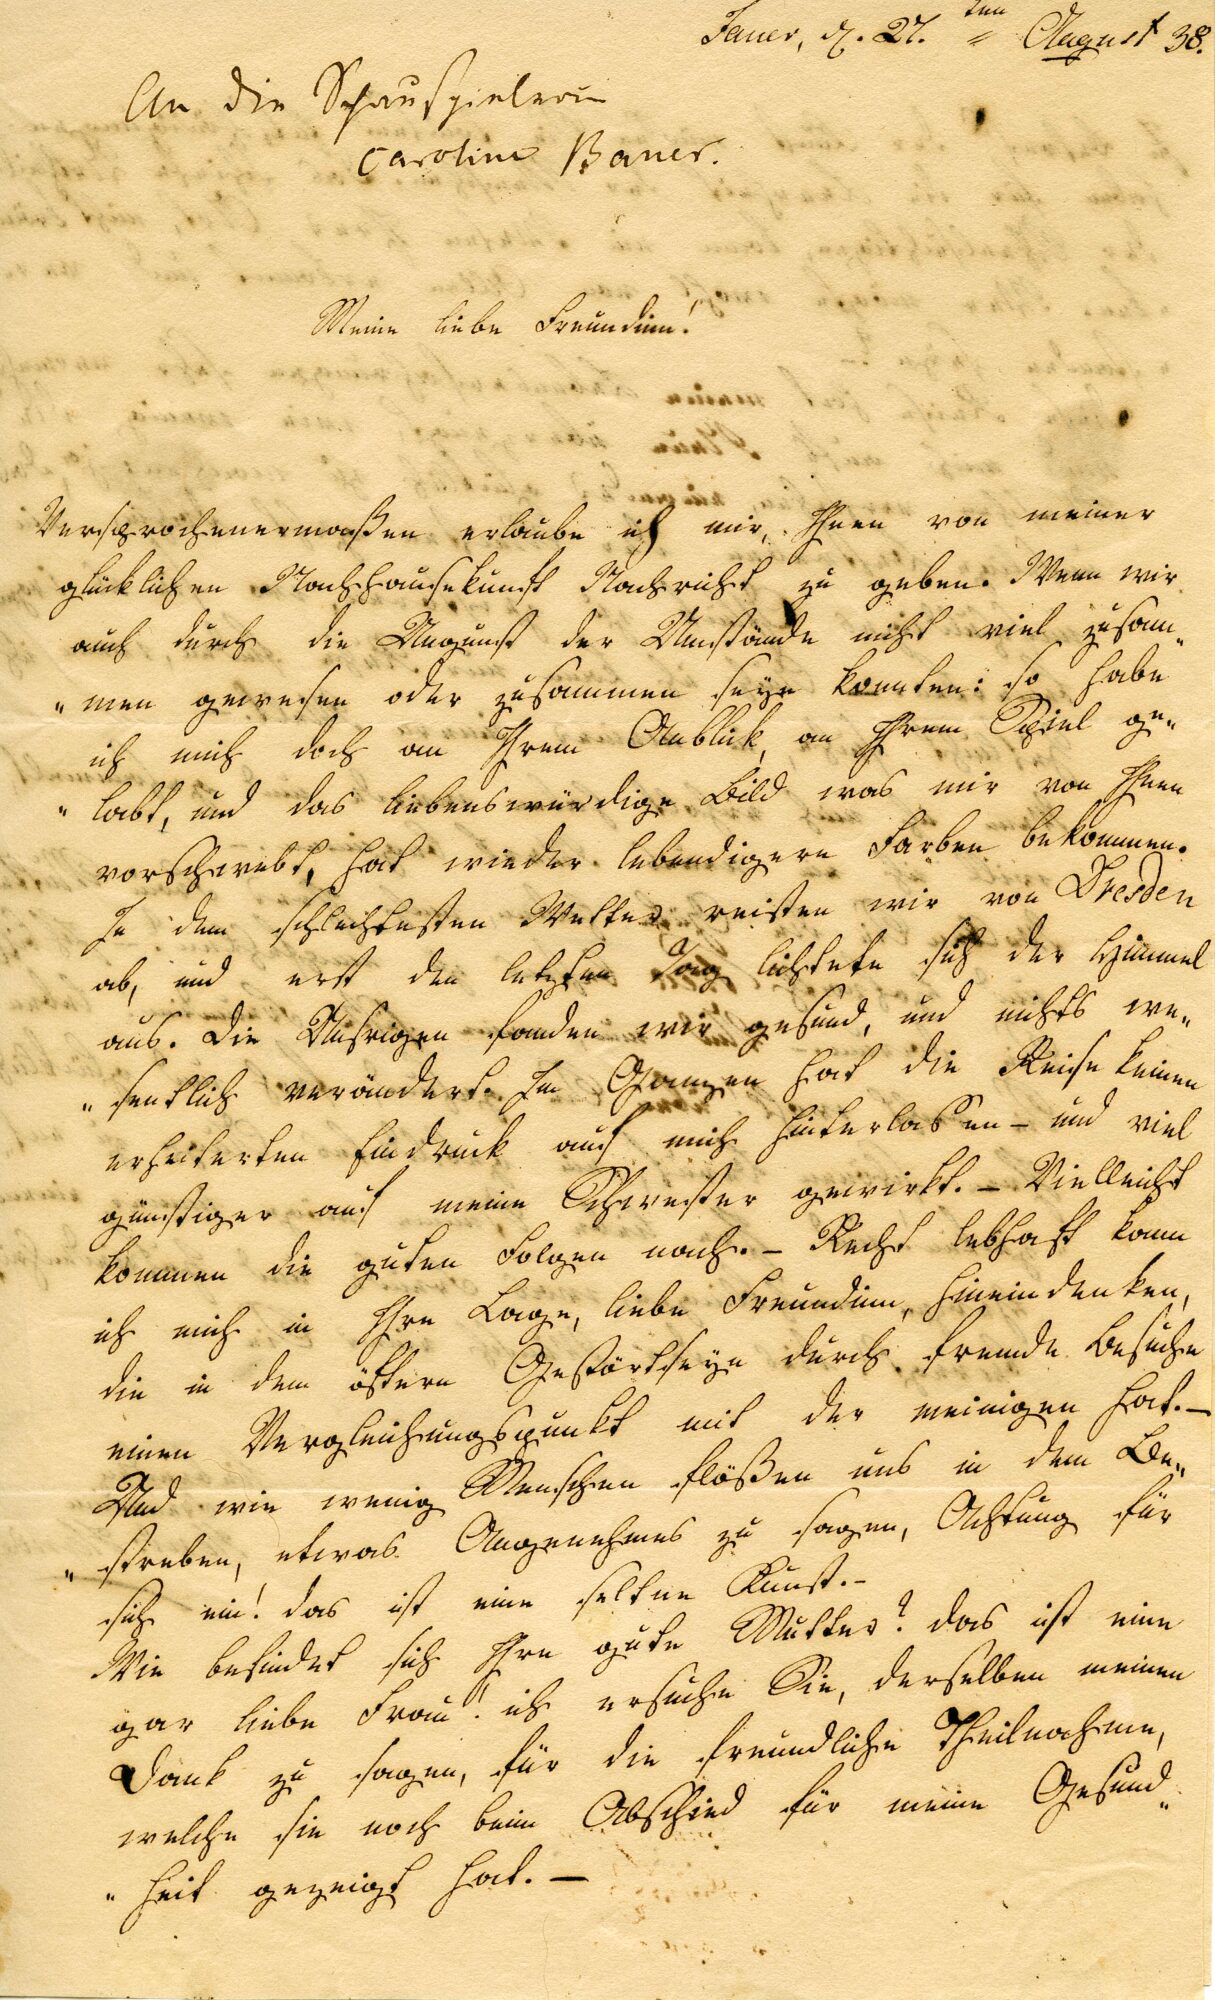 Jauer, d. 27. ten August 38.
An die Schauspielerin
Caroline Bauer.
Meine liebe Freundinn!
Versprochenermaaßen erlaube ich mir, Ihnen von meiner
glücklichen Nachhausekunft Nachricht zu geben. Wenn wir
auch durch die Ungunst der Umstände nicht viel zusam„
„men gewesen oder zusammen seyn konnten: so habe
ich mich doch an Ihrem Anblick, an Ihrem Spiel ge„
„labt, und das liebenswürdige Bild was mir von Ihnen
vorschwebt, hat wieder lebendigere Farben bekommen.
In dem schlechtesten Wetter reisten wir von Dresden
ab, und erst den letzten Tag lichtete sich der Himmel
aus. Die Unsrigen fanden wir gesund, und nichts we„
„sentlich verändert. Im Ganzen hat die Reise keinen
erheiterten Eindruck auf mich hinterlassen – und viel
günstiger auf meine Schwester gewirkt. – Vielleicht
kommen die guten Folgen nach. – Recht lebhaft kann
ich mich in Ihre Lage, liebe Freundinn, hineindenken,
die in dem öftern Gestörtseyn durch fremde Besuche
einen Vergleichungspunkt mit der meinigen hat. –
Und wie wenig Menschen flößen uns in dem Be„
„streben, etwas Angenehmes zu sagen, Achtung für
sich ein! das ist eine seltne Kunst. –
Wie befindet sich Ihre gute Mutter? das ist eine
gar liebe Frau! ich ersuche Sie, derselben meinen
Dank zu sagen, für die freundliche Theilnahme,
welche sie noch beim Abschied für meine Gesund„
„heit gezeigt hat. –